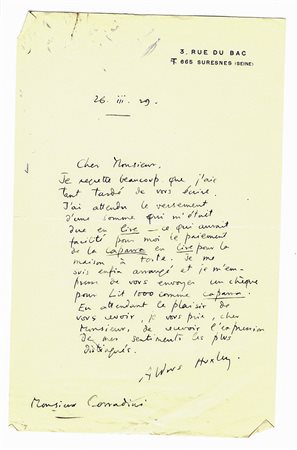 3. RUE DU BAC
T 665 SURESNES (SEINE)
26. iii. 29.
Cher Monsieur,
Je regrette beaucoup que j'aie
tant tardé de vous écrire.
J'ai attendu le versement
d'une somme qui m'était
due en lire — ce qui aurait
facilité pour moi le paiement
de la caparra en lire pour la
maison à Forte. Je me
suis enfin arrangé et je m'em-
presse de vous envoyer un chèque
pour Lit 1000 comme caparra.
En attendant le plaisir de
vous revoir, je vous prie, cher
Monsieur, de recevoir l'expression
de mes sentiments les plus
distingués.
Aldous Huxley
Monsieur Corradini